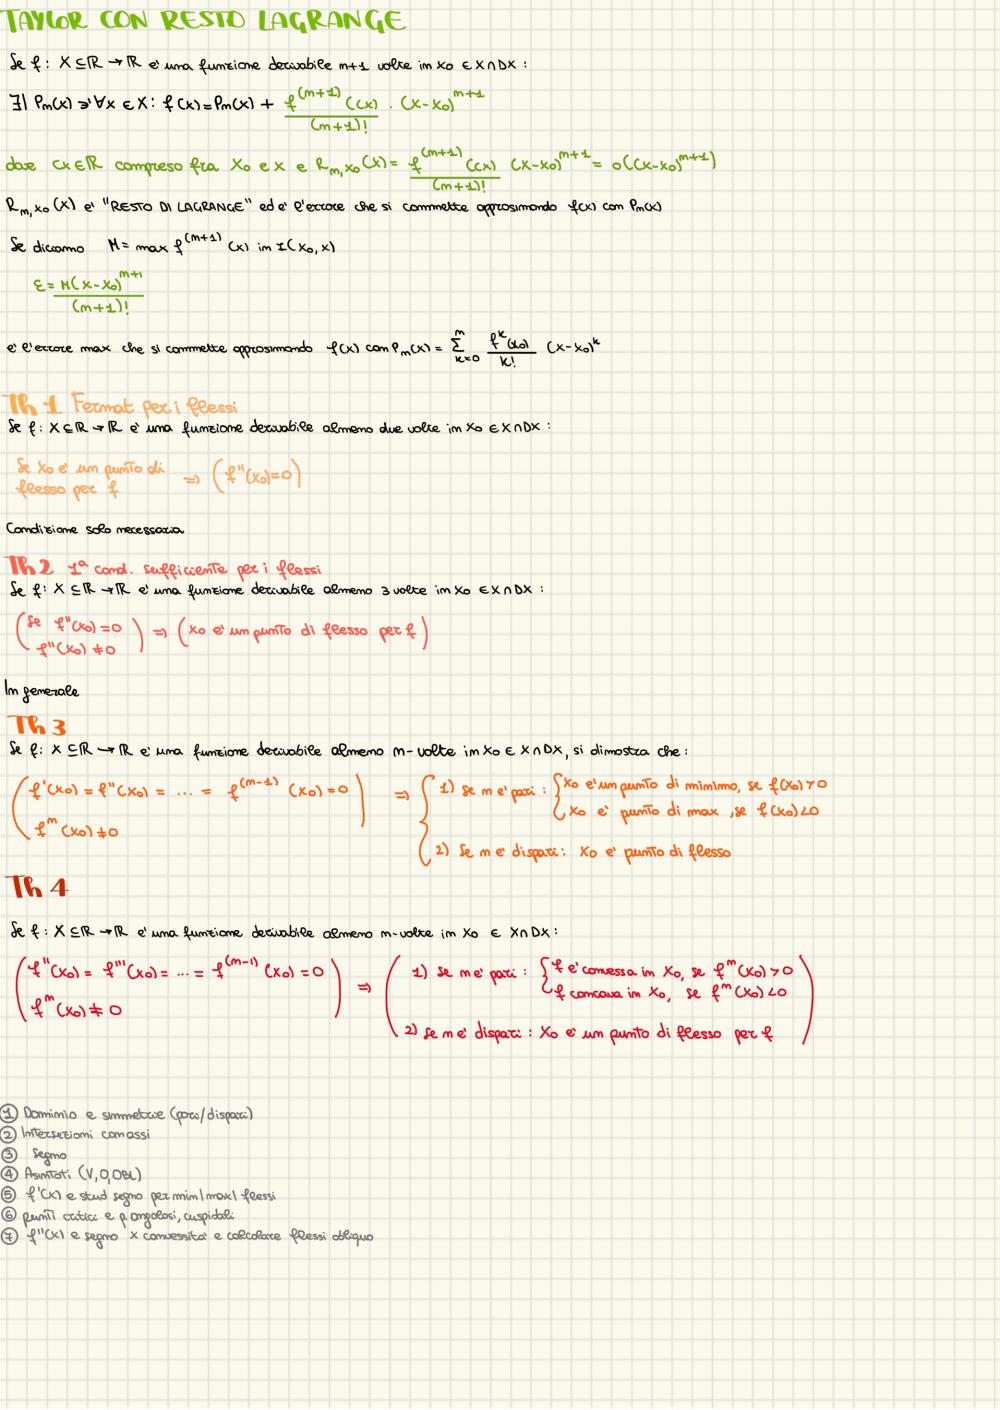 TAYLOR CON RESTO LAGRANGE
Se f: X ⊆ ℝ → ℝ e' una funzione derivabile n+1 volte in x₀ ∈ X∩DX :
∃| Pₙ(x) ∋' ∀x ∈ X: f(x) = Pₙ(x) + f⁽ⁿ⁺¹⁾(cx)/(n+1)! · (x-x₀)ⁿ⁺¹
dove cx∈ℝ compreso fra x₀ e x e Rₙ,ₓ₀(x) = f⁽ⁿ⁺¹⁾(cx)/(n+1)! (x-x₀)ⁿ⁺¹ = o((x-x₀)ⁿ⁺¹)
Rₙ,ₓ₀(x) e' "RESTO DI LAGRANGE" ed e' l'errore che si commette approsimando f(x) con Pₙ(x)
Se diciamo M = max f⁽ⁿ⁺¹⁾(x) in I(x₀,x)
ε = M(x-x₀)ⁿ⁺¹/(n+1)!
e' l'errore max che si commette approsimando f(x) con Pₙ(x) = Σⁿₖ₌₀ fᵏ(x₀)/k! (x-x₀)ᵏ
Th 1 Fermat per i flessi
Se f: X ⊆ ℝ → ℝ e' una funzione derivabile almeno due volte in x₀ ∈ X∩DX :
Se x₀ e' un punto di
flesso per f ⇒ (f''(x₀)=0)
Condizione solo necessaria
Th 2 1ª cond. sufficiente per i flessi
Se f: X ⊆ ℝ → ℝ e' una funzione derivabile almeno 3 volte in x₀ ∈ X∩DX :
(Se f''(x₀) = 0 ) ⇒ (x₀ e' un punto di flesso per f)
f''(x₀) ≠ 0
In generale
Th 3
Se f: X ⊆ ℝ → ℝ e' una funzione derivabile almeno n-volte in x₀ ∈ X∩DX, si dimostra che :
(f'(x₀) = f''(x₀) = ... = f⁽ⁿ⁻¹⁾(x₀) = 0 ) ⇒ { 1) Se n e' pari : { x₀ e' un punto di minimo, se f(x₀) > 0
x₀ e' punto di max , se f(x₀) < 0
fⁿ(x₀) ≠ 0
2) Se n e' dispari : x₀ e' punto di flesso
Th 4
Se f: X ⊆ ℝ → ℝ e' una funzione derivabile almeno n-volte in x₀ ∈ X∩DX :
(f''(x₀) = f'''(x₀) = ... = f⁽ⁿ⁻¹⁾(x₀) = 0 ) ⇒ ( 1) Se n e' pari : { f e' convessa in x₀, se fⁿ(x₀) > 0
f concava in x₀, se fⁿ(x₀) < 0
fⁿ(x₀) ≠ 0
2) Se n e' dispari : x₀ e' un punto di flesso per f )
① Dominio e simmetrie (pari/dispari)
② Intersezioni con assi
③ Segno
④ Asintoti (V,O,OBL)
⑤ f'(x) e stud segno per min/max/ flessi
⑥ punti critici e p angolosi, cuspidali
⑦ f''(x) e segno x convessita' e calcolare flessi obliquo